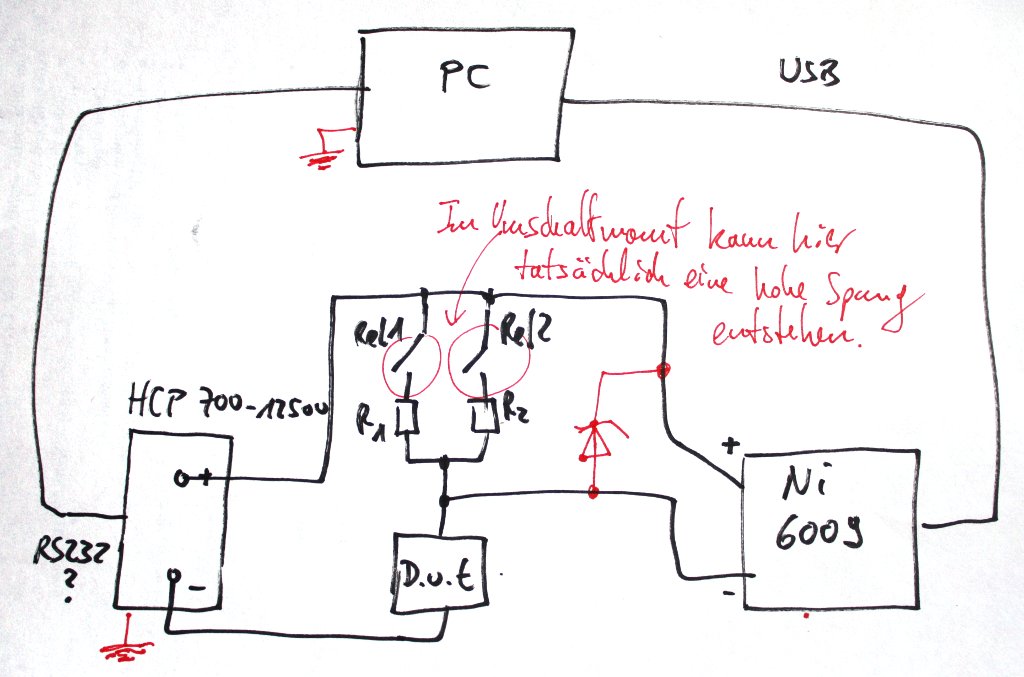 PC
USB
Im Umschaltmomt kann hier
tatsächlich eine hohe Spanng
entstehen.
Rel1
Rel2
HCP 700-12500
R1
R2
+
+
Ni
6009
RS232
?
D.u.t
-
-